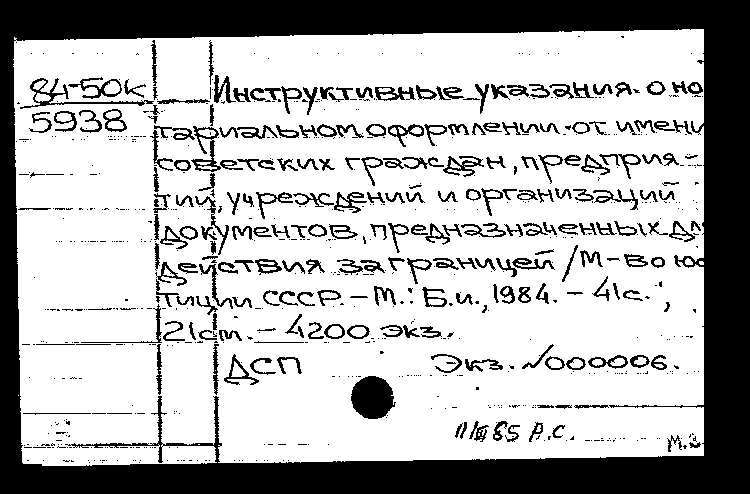 84-50к
5938
Инструктивные указания о но
тариальном оформлении от имени
советских граждан, предприя-
тий, учреждений и организаций
документов, предназначенных для
действия за границей / М-во юс
тиции СССР. - М.: Б.и., 1984. - 41с.;
21см. - 4200 экз.
ДСП Экз. №000006.
85 А.С.